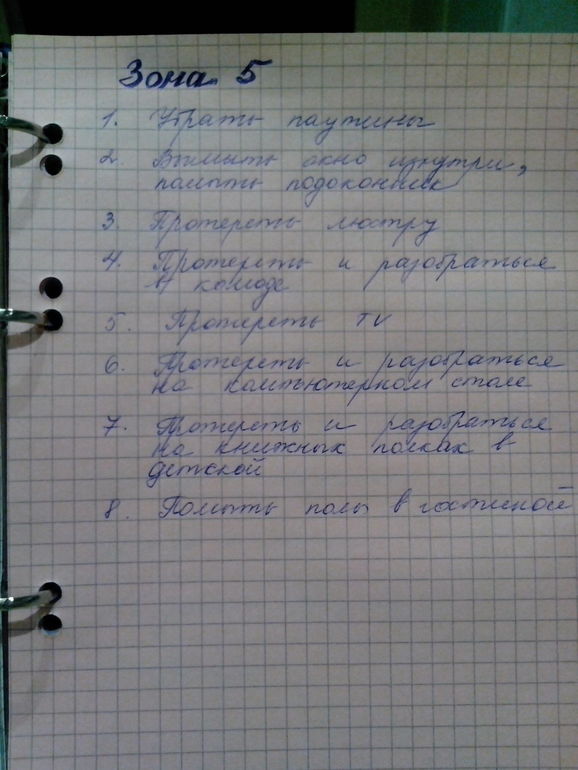 Зона 5
1. Убрать паутины
2. Вымыть окно изнутри,
помыть подоконник
3. Протереть люстру
4. Протереть и разобраться
в комоде
5. Протереть TV
6. Протереть и разобраться
на компьютерном столе
7. Протереть и разобраться
на книжных полках в
детской
8. Помыть полы в гостиной